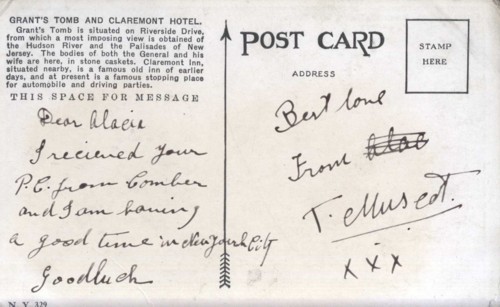 GRANT'S TOMB AND CLAREMONT HOTEL.
Grant's Tomb is situated on Riverside Drive,
from which a most imposing view is obtained of
the Hudson River and the Palisades of New
Jersey. The bodies of both the General and his
wife are here, in stone caskets. Claremont Inn,
situated nearby, is a famous old inn of earlier
days, and at present is a famous stopping place
for automobile and driving parties.
THIS SPACE FOR MESSAGE
Dear
I recieved your
P.C. from Comber
and I am having
a good time in New York City
Goodluck
N. Y. 329
POST CARD
ADDRESS
STAMP
HERE
Best love
From
T.
x x x